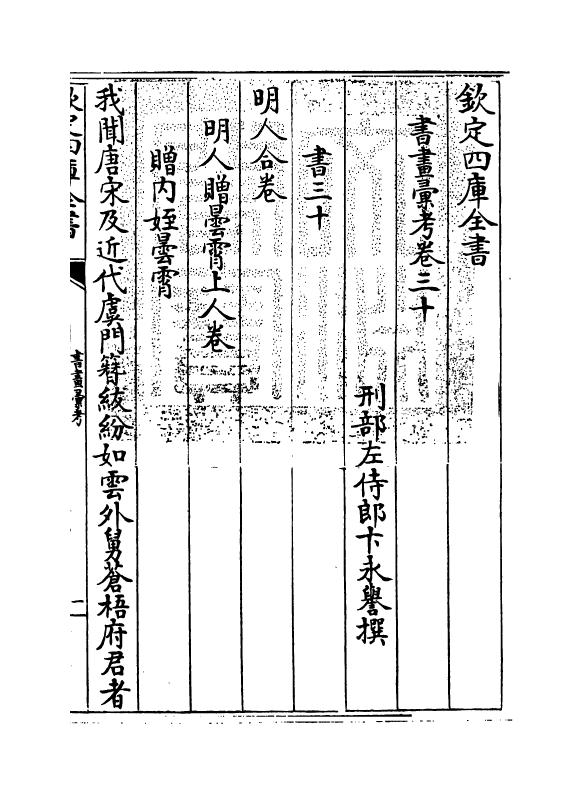 欽定四庫全書
書畫彙考卷三十
刑部左侍郎卞永譽撰
書三十
明人合卷
明人贈曇霄上人卷
贈内姪曇霄
我聞唐宋及近代虞門簪紱紛如雲外舅蒼梧府君者
欽定四庫全書
書畫彙考